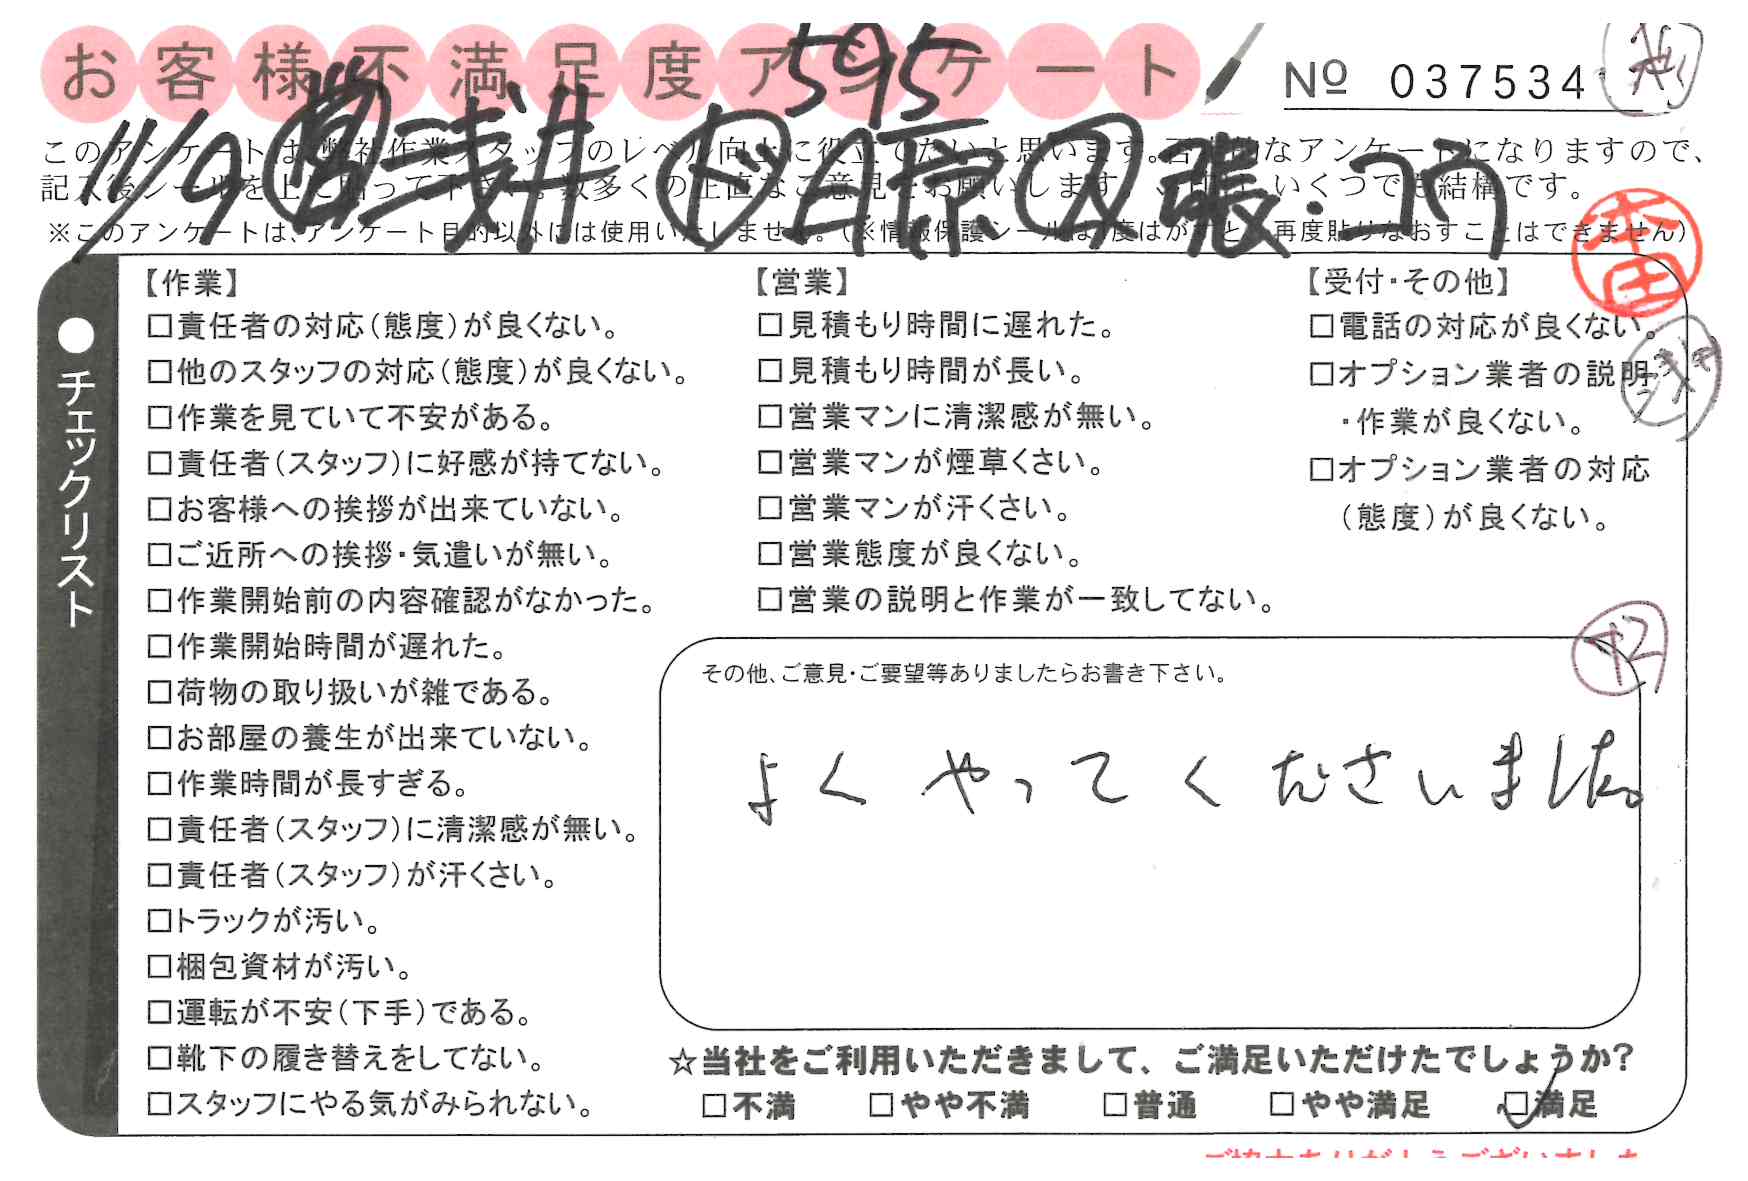 お客様不満足度アンケート
595
№ 037534
11/9 営 浅井
このアンケートは、弊社作業スタッフのレベル向上に役立てたいと思います。否定的なアンケートになりますので、
記入後シールを上に貼って下さい。数多くの正直なご意見をお願いします。
いくつでも結構です。
※このアンケートは、アンケート目的以外には使用いたしません。(※情報保護シールは1度はがすと、再度貼りなおすことはできません)
●チェックリスト
【作業】
□責任者の対応(態度)が良くない。
□他のスタッフの対応(態度)が良くない。
□作業を見ていて不安がある。
□責任者(スタッフ)に好感が持てない。
□お客様への挨拶が出来ていない。
□ご近所への挨拶・気遣いが無い。
□作業開始前の内容確認がなかった。
□作業開始時間が遅れた。
□荷物の取り扱いが雑である。
□お部屋の養生が出来ていない。
□作業時間が長すぎる。
□責任者(スタッフ)に清潔感が無い。
□責任者(スタッフ)が汗くさい。
□トラックが汚い。
□梱包資材が汚い。
□運転が不安(下手)である。
□靴下の履き替えをしてない。
□スタッフにやる気がみられない。
【営業】
□見積もり時間に遅れた。
□見積もり時間が長い。
□営業マンに清潔感が無い。
□営業マンが煙草くさい。
□営業マンが汗くさい。
□営業態度が良くない。
□営業の説明と作業が一致してない。
【受付・その他】
□電話の対応が良くない。
□オプション業者の説明
・作業が良くない。
□オプション業者の対応
(態度)が良くない。
その他、ご意見・ご要望等ありましたらお書き下さい。
よくやってくださいました。
☆当社をご利用いただきまして、ご満足いただけたでしょうか?
□不満 □やや不満 □普通 □やや満足 □満足